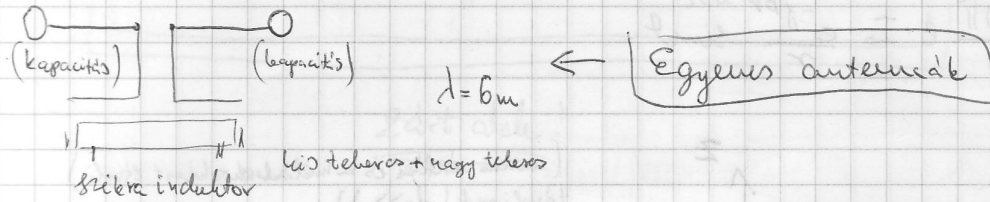 (kapacitás)
(kapacitás)
λ = 6m
← Egyenes antennák
kis tekercs + nagy tekercs
szikra induktor